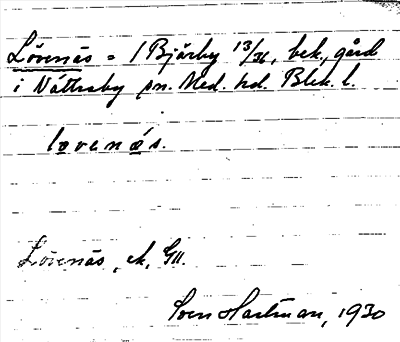 Lövenäs = 1 Bjärby 13/36, bek., gård
i Nättraby sn. Med. hd. Blek. l.
lövenä́s.
Lövenäs, ek, GII.
Sven Hartman, 1930